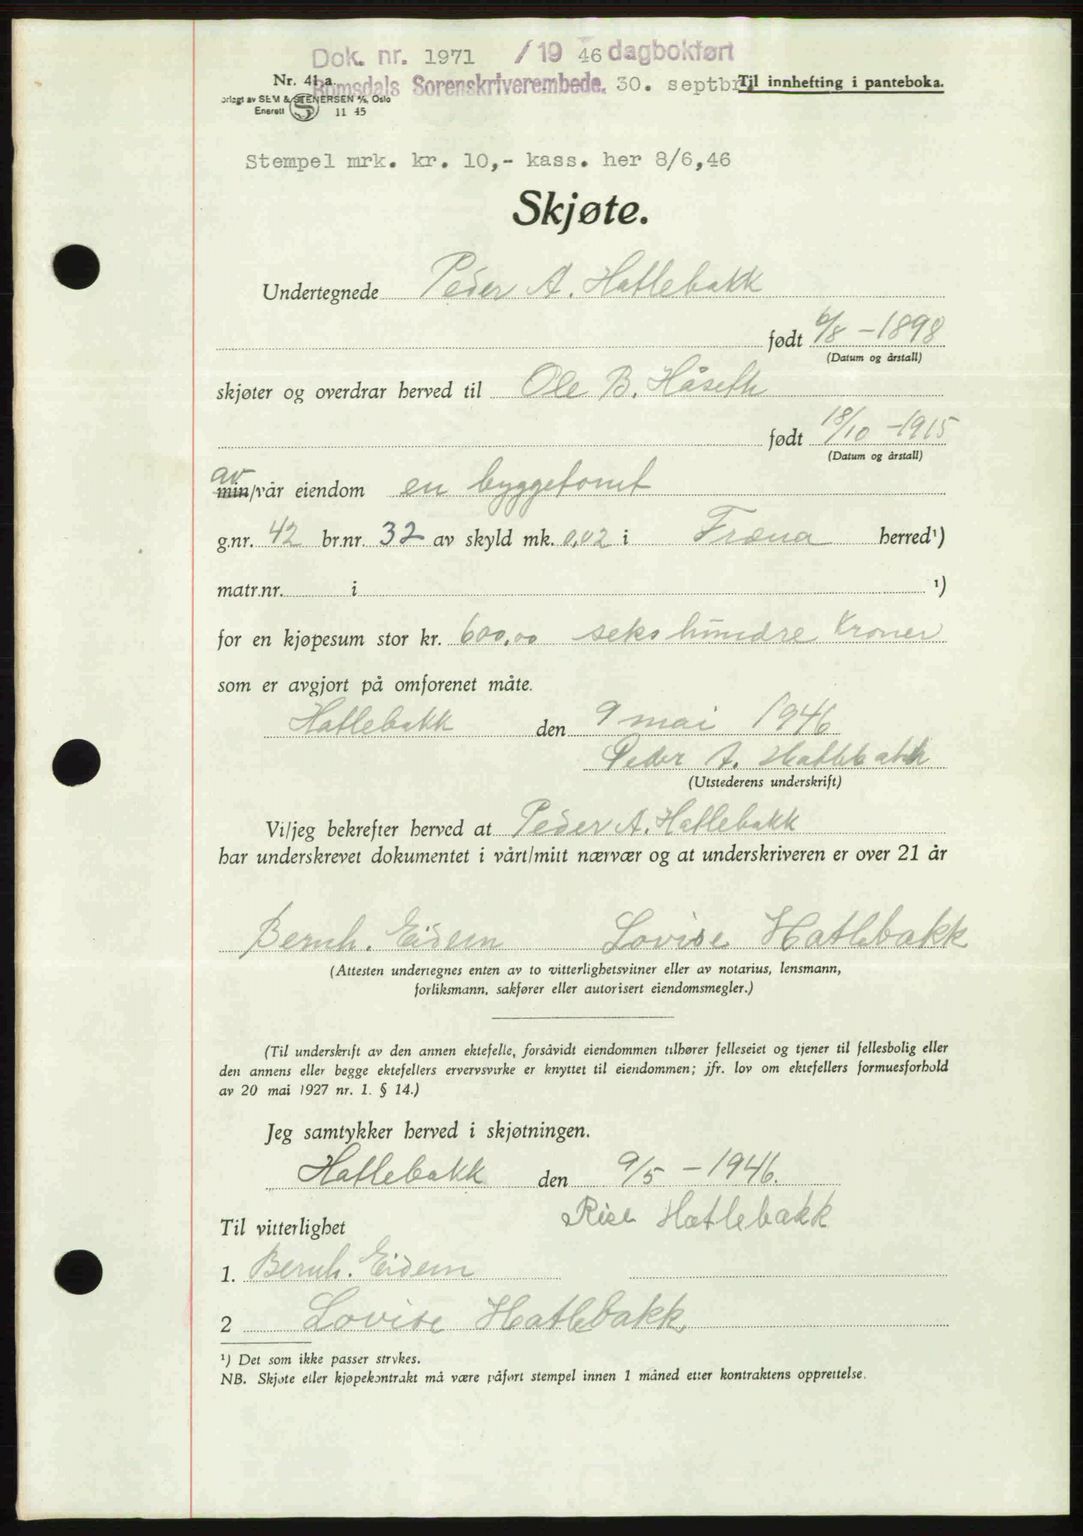 Dok. nr. 1971 /19 46 dagbokført
Nr. 41 a Romsdals Sorenskriverembede. 30. septbr. Til innhefting i panteboka.
orlagt av SEM & STENERSEN A/S, Oslo
Enerett S 11 45
Stempel mrk. kr. 10,- kass. her 8/6,46
Skjøte.
Undertegnede Peder A. Hatlebakk
født 6/8 - 1898
(Datum og årstall)
skjøter og overdrar herved til Ole B. Håseth
født 18/10 - 1915
(Datum og årstall)
av
min/vår eiendom en byggetomt
g.nr. 42 br.nr. 32 av skyld mk. 0,02 i Fræna herred¹)
matr.nr. i ¹)
for en kjøpesum stor kr. 600,00 seks hundre Kroner
som er avgjort på omforenet måte.
Hatlebakk den 9 mai 1946
Peder A. Hatlebakk
(Utstederens underskrift)
Vi/jeg bekrefter herved at Peder A. Hatlebakk
har underskrevet dokumentet i vårt/mitt nærvær og at underskriveren er over 21 år
Bernh. Eidem Lovise Hatlebakk
(Attesten undertegnes enten av to vitterlighetsvitner eller av notarius, lensmann,
forliksmann, sakfører eller autorisert eiendomsmegler.)
(Til underskrift av den annen ektefelle, forsåvidt eiendommen tilhører felleseiet og tjener til fellesbolig eller
den annens eller begge ektefellers ervervsvirke er knyttet til eiendommen; jfr. lov om ektefellers formuesforhold
av 20 mai 1927 nr. 1. § 14.)
Jeg samtykker herved i skjøtningen.
Hatlebakk den 9/5 - 1946.
Hatlebakk
Til vitterlighet
1. Bernh. Eidem
2 Lovise Hatlebakk
¹) Det som ikke passer strykes.
NB. Skjøte eller kjøpekontrakt må være påført stempel innen 1 måned etter kontraktens opprettelse.